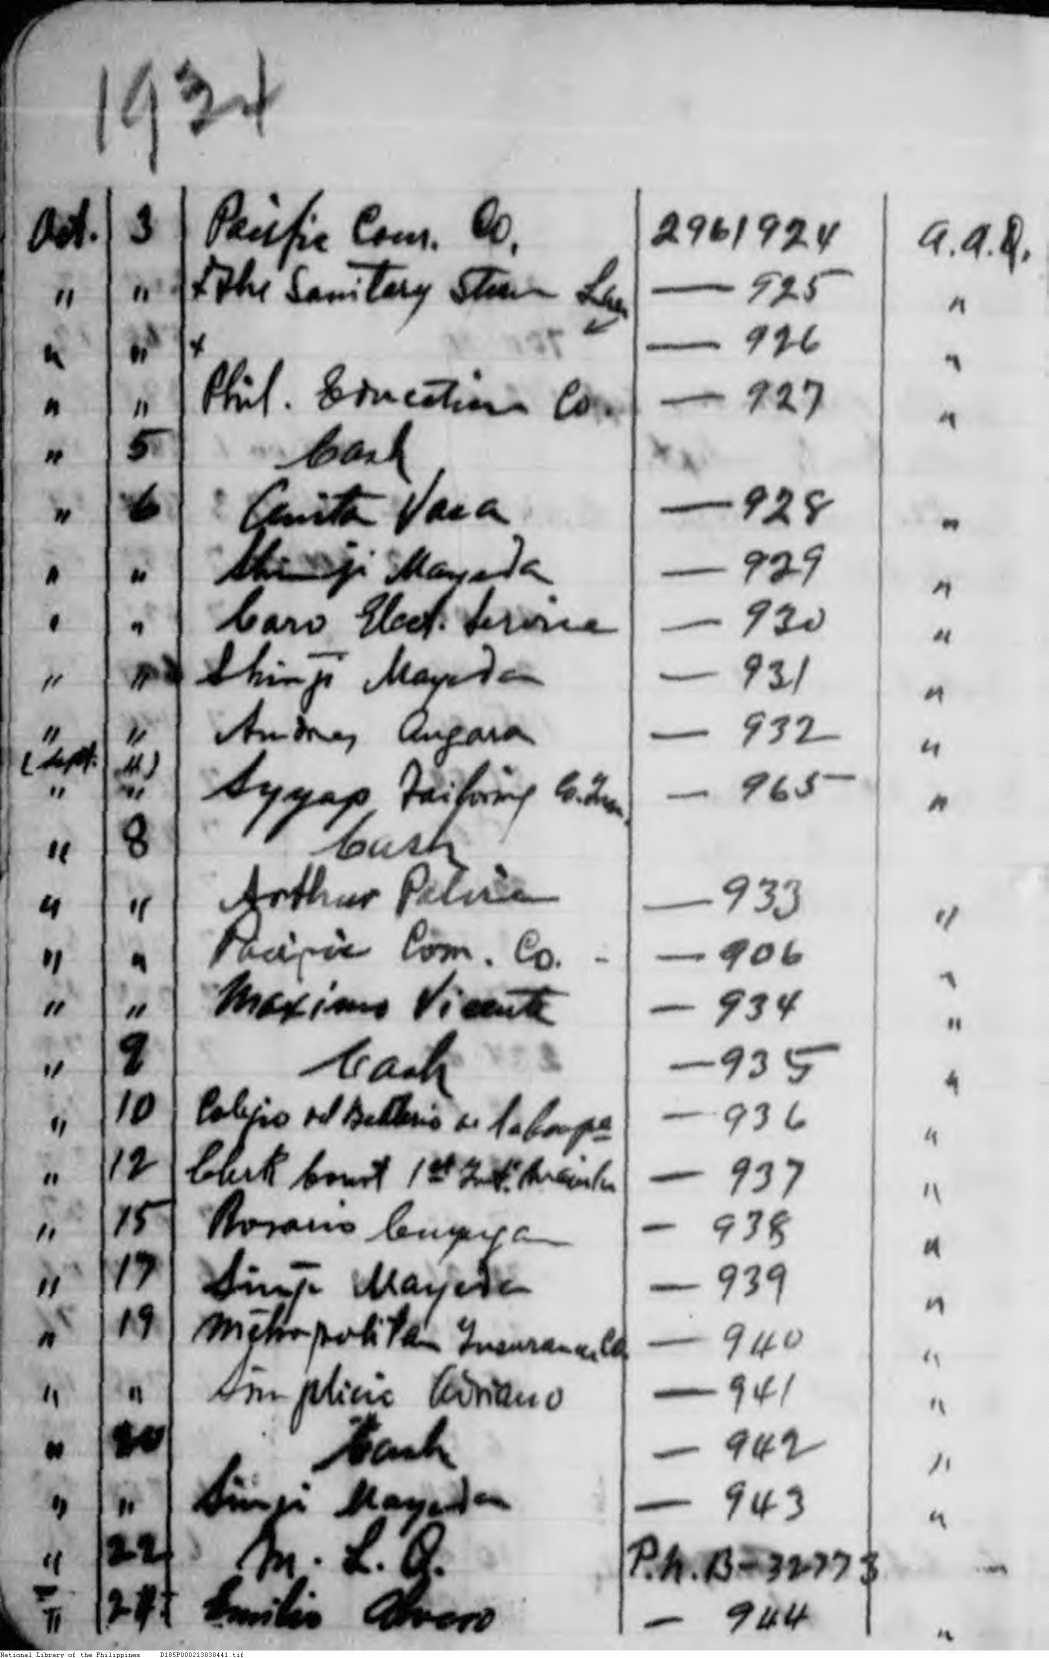 1934
Oct. 3 Pacific Com. Co. 2961924 a.a.Q.
" " x The Sanitary Steam Lau — 925 "
" " x — 926 "
" " Phil. Education Co. — 927 "
" 5 Cash
" 6 Anita Vaca — 928 "
" " Shinji Mayeda — 929 "
" " Caro Elect. Service — 930 "
" " Shinji Mayeda — 931 "
" " Andres Angara — 932 "
(Sept. )
" " Syyap Tailoring — 965 "
" 8 Cash
" " Arthur — 933 "
" " Pacific Com. Co. - — 906 "
" " Maximo Vicente — 934 "
" 9 Cash — 935 "
" 10 Colegio del — 936 "
" 12 Clerk Court 1st — 937 "
" 15 Rosario — 938 "
" 17 Sinji Mayeda — 939 "
" 19 Metropolitan Insurance Co. — 940 "
" " Simplicio Adriano — 941 "
" 20 Cash — 942 "
" " Sinji Mayeda — 943 "
" 22 M. L. Q. P.N.B-32773 —
" Emilio Alvaro — 944 "
National Library of the Philippines D185P000213838441.tif